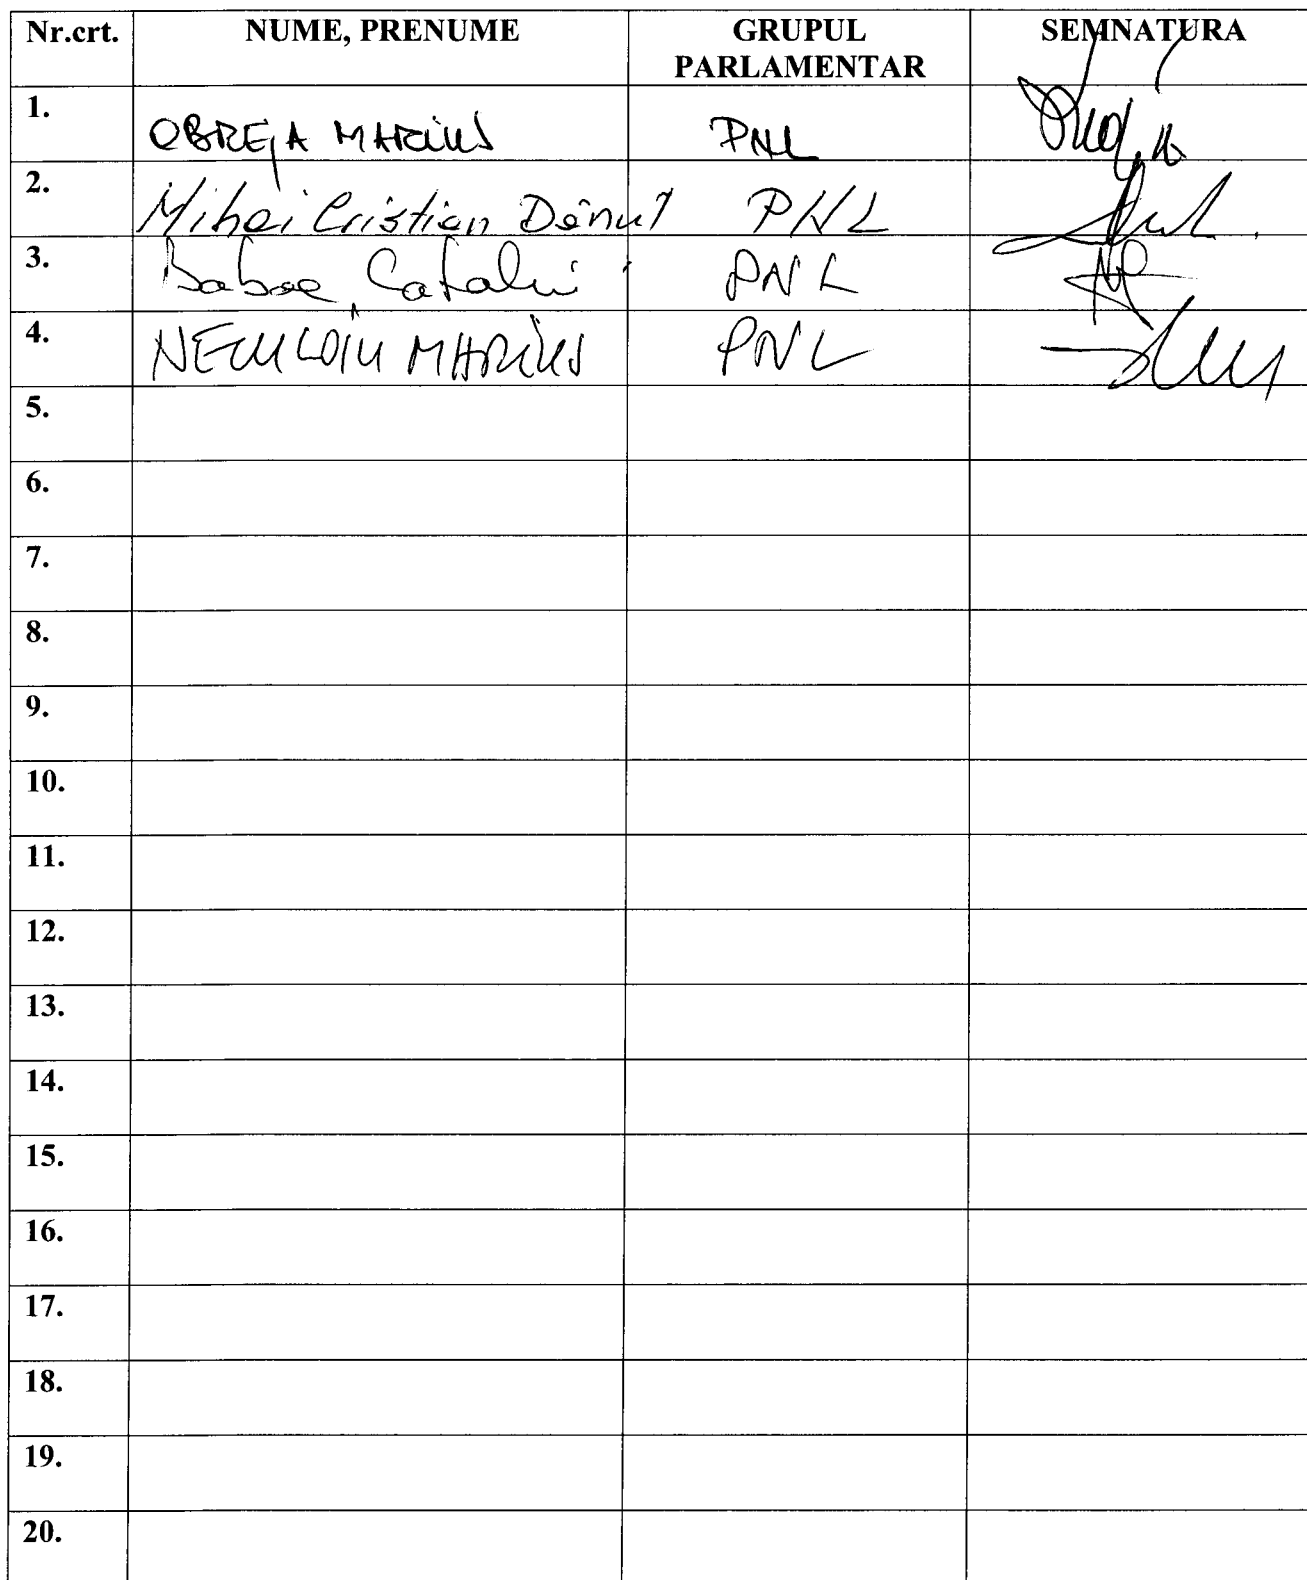 Nr.crt. NUME, PRENUME GRUPUL PARLAMENTAR SEMNATURA
1. OBREJA MARIUS PNL
2. Mihai Cristian Dănuț PNL
3. Baboe Catalin PNL
4. NECULOIU MARIUS PNL
5.
6.
7.
8.
9.
10.
11.
12.
13.
14.
15.
16.
17.
18.
19.
20.